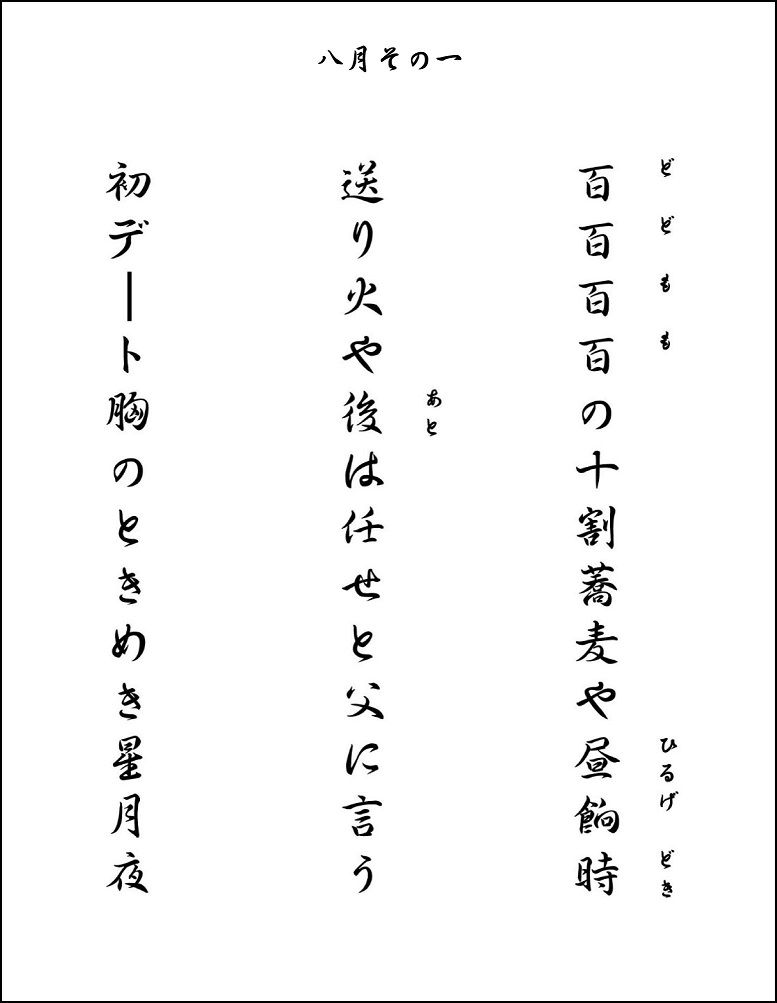 八月その一
どどもも
百百百百の十割蕎麦や昼餉時
ひるげどき
あと
送り火や後は任せと父に言う
初デート胸のときめき星月夜